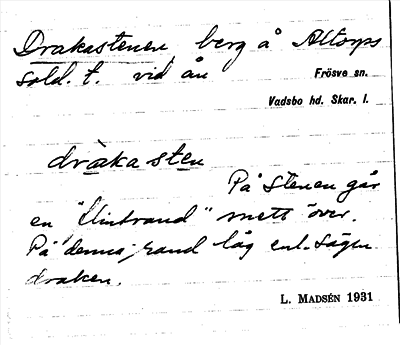 Drakastenen, berg å Altorps
sold. t. vid ån
Frösve sn.
Vadsbo hd. Skar. l.
dràka sten
På stenen går
en "flintrand" mett över.
På denna rand låg enl. sägen
draken.
L. MADSÉN 1931